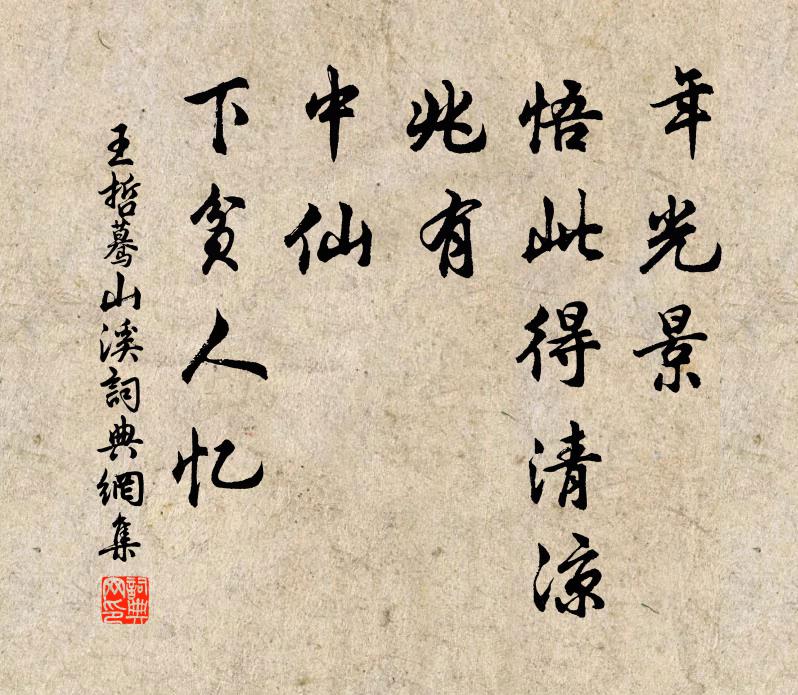 年光景
悟此得清凉
兆有
中仙
下贫人忆
王哲驀山溪詞典網集
詞典
网印